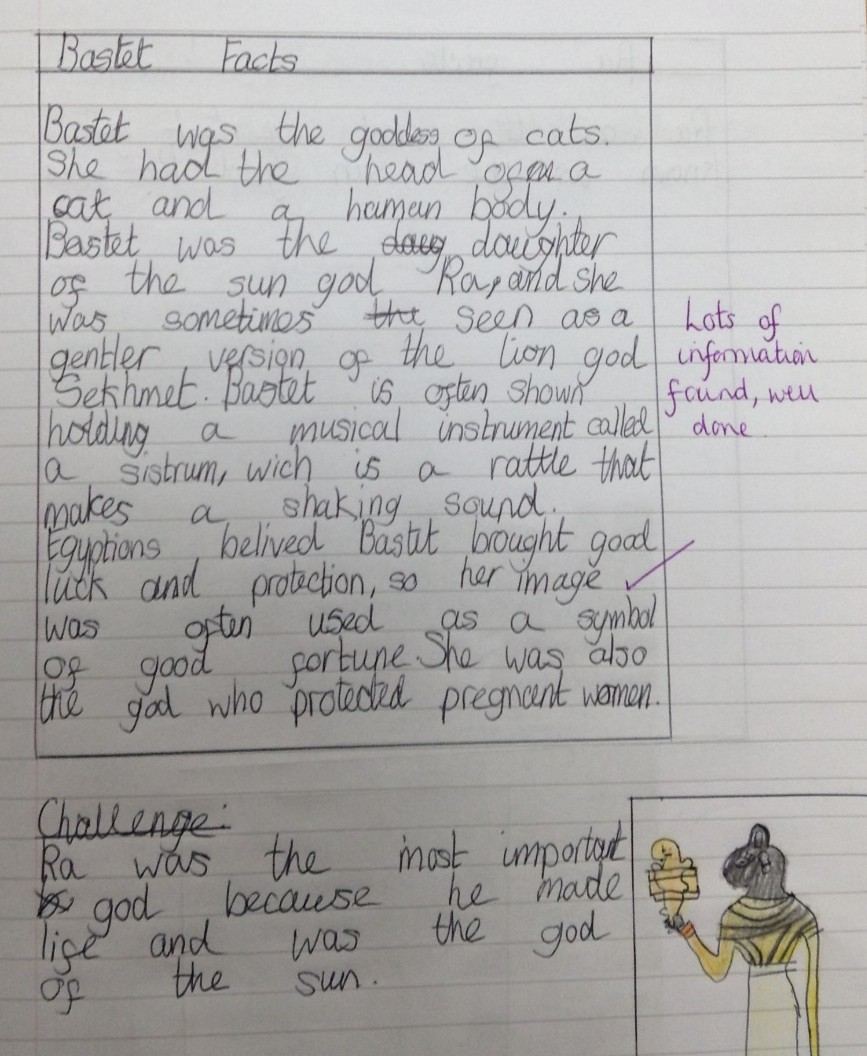 Bastet Facts
Bastet was the goddess of cats.
She had the head of a
cat and a human body.
Bastet was the daug daughter
of the sun god Ra, and she
was sometimes the seen as a
gentler version of the lion god
Sekhmet. Bastet is often shown
holding a musical instrument called
a sistrum, wich is a rattle that
makes a shaking sound.
Egyptions belived Bastet brought good
luck and protection, so her image
was often used as a symbol
of good fortune. She was also
the god who protected pregnant women.
Lots of
information
found, well
done
Challenge:
Ra was the most important
god because he made
life and was the god
of the sun.